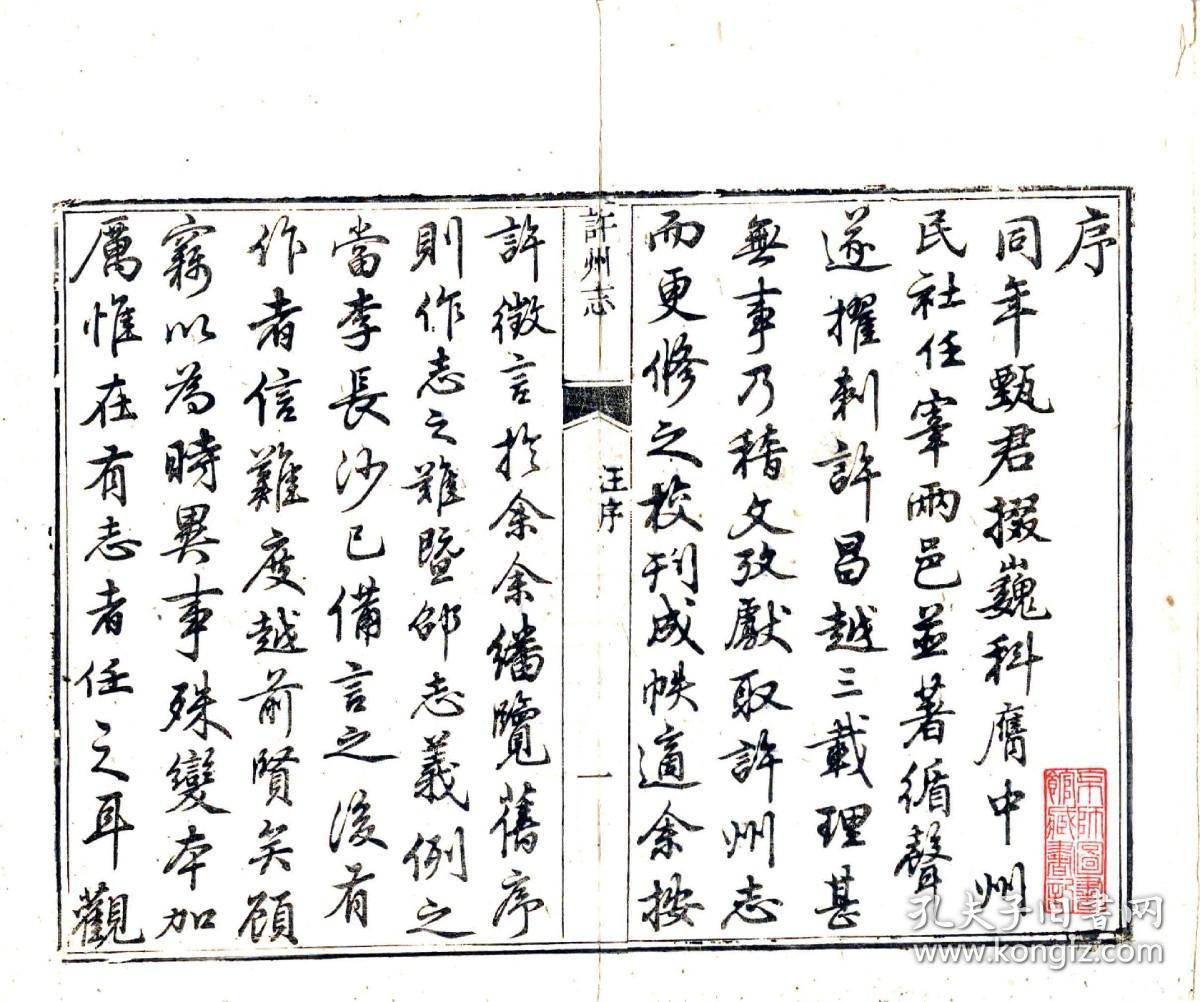 序
同年甄君掇巍科膺中州
民社任宰兩邑並著循聲
遂擢刺許昌越三載理甚
無事乃稽文攷獻取許州志
而更修之校刊成帙適余按
許州志
汪序
一
許徵言於余余繙覽舊序
則作志之難暨邵志義例之
當李長沙已備言之後有
作者信難度越前賢矣顧
竊以為時異事殊變本加
厲惟在有志者任之耳觀
京師圖書
館藏書記
孔夫子旧书网
www.kongfz.com